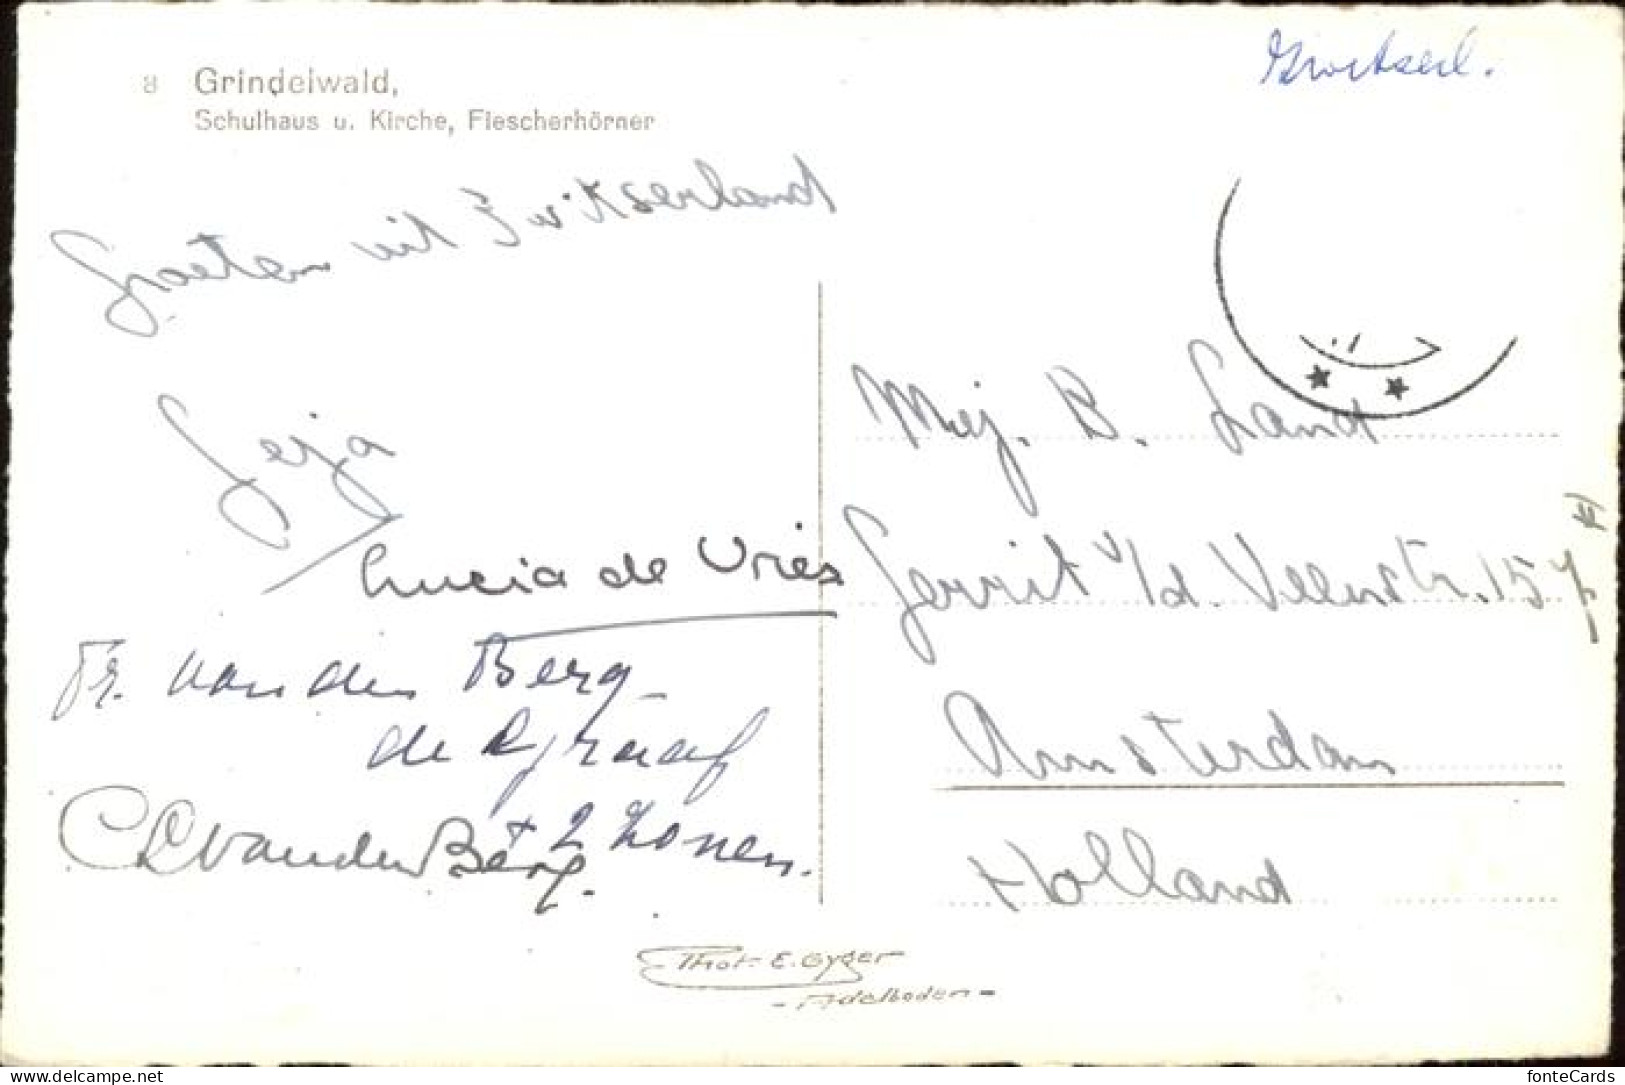 8 Grindelwald,
Schulhaus u. Kirche, Fiescherhörner
Zwitserl.
Groeten uit Zwitserland
Geja
Lucia de Vries
Fr. van den Berg-
de Graaf
+ 2 zonen.
C L van den Berg.
Mej. B. Land
Gerrit v/d. Veenstr. 157 II
Amsterdam
Holland
Phot. E. Gyger
- Adelboden -
https://www.delcampe.net
fonteCards